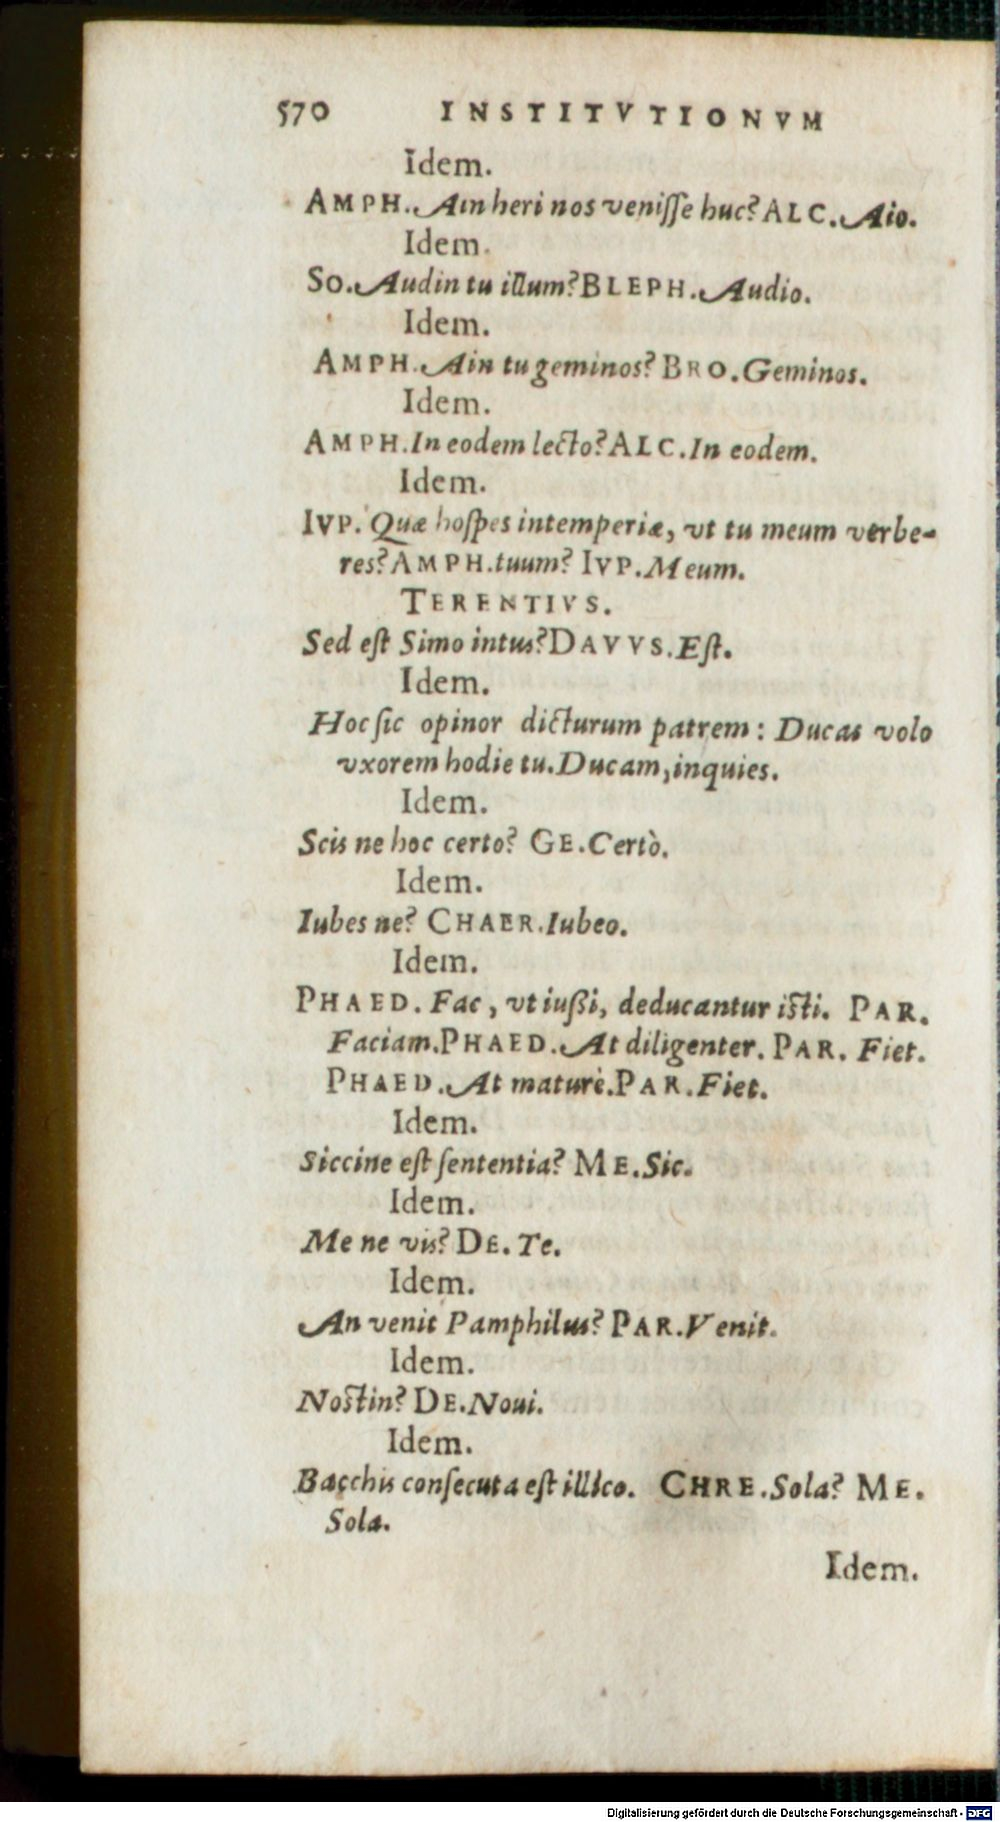 570 INSTITVTIONVM
Idem.
AMPH. Ain heri nos venisse huc? ALC. Aio.
Idem.
So. Audin tu illum? BLEPH. Audio.
Idem.
AMPH. Ain tu geminos? BRO. Geminos.
Idem.
AMPH. In eodem lecto? ALC. In eodem.
Idem.
IVP. Quæ hospes intemperiæ, vt tu meum verbe-
res? AMPH. tuum? IVP. Meum.
TERENTIVS.
Sed est Simo intus? DAVVS. Est.
Idem.
Hoc sic opinor dicturum patrem: Ducas volo
vxorem hodie tu. Ducam, inquies.
Idem.
Scis ne hoc certo? GE. Certò.
Idem.
Iubes ne? CHAER. Iubeo.
Idem.
PHAED. Fac, vt iußi, deducantur isti. PAR.
Faciam. PHAED. At diligenter. PAR. Fiet.
PHAED. At maturè. PAR. Fiet.
Idem.
Siccine est sententia? ME. Sic.
Idem.
Me ne vis? DE. Te.
Idem.
An venit Pamphilus? PAR. Venit.
Idem.
Nostin? DE. Noui.
Idem.
Bacchis consecuta est illico. CHRE. Sola? ME.
Sola.
Idem.
Digitalisierung gefördert durch die Deutsche Forschungsgemeinschaft - DFG